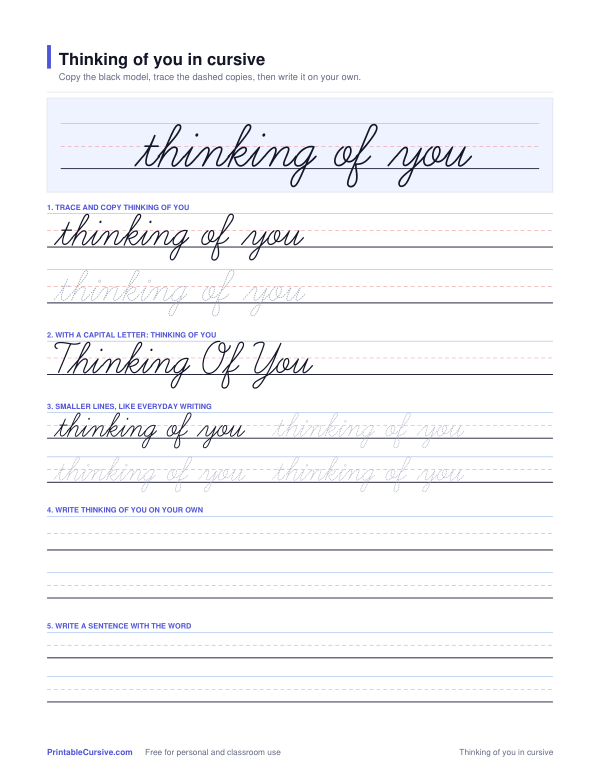 Thinking of you in cursive
Copy the black model, trace the dashed copies, then write it on your own.
thinking of you
1. TRACE AND COPY THINKING OF YOU
thinking of you
thinking of you
2. WITH A CAPITAL LETTER: THINKING OF YOU
Thinking Of You
3. SMALLER LINES, LIKE EVERYDAY WRITING
thinking of you thinking of you
thinking of you thinking of you
4. WRITE THINKING OF YOU ON YOUR OWN
5. WRITE A SENTENCE WITH THE WORD
PrintableCursive.com Free for personal and classroom use Thinking of you in cursive